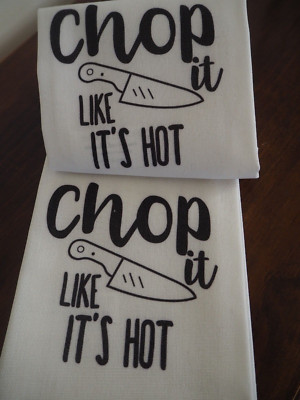 chop
it
LIKE
IT'S HOT
chop
it
LIKE
IT'S HOT